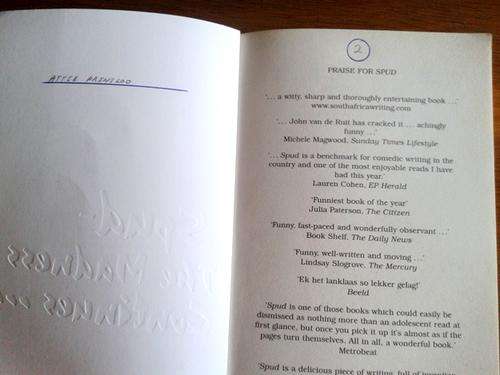 2
PRAISE FOR SPUD
'... a witty, sharp and thoroughly entertaining book ...'
www.southafricawriting.com
'... John van de Ruit has cracked it ... achingly
funny ...'
Michele Magwood, Sunday Times Lifestyle
'... Spud is a benchmark for comedic writing in the
country and one of the most enjoyable reads I have
had this year.'
Lauren Cohen, EP Herald
'Funniest book of the year'
Julia Paterson, The Citizen
'Funny, fast-paced and wonderfully observant ...'
Book Shelf, The Daily News
'Funny, well-written and moving ...'
Lindsay Slogrove, The Mercury
'Ek het lanklaas so lekker gelag!'
Beeld
'Spud is one of those books which could easily be
dismissed as nothing more than an adolescent read at
first glance, but once you pick it up it's almost as if the
pages turn themselves. All in all, a wonderful book.'
Metrobeat
'Spud is a delicious piece of writing, full of